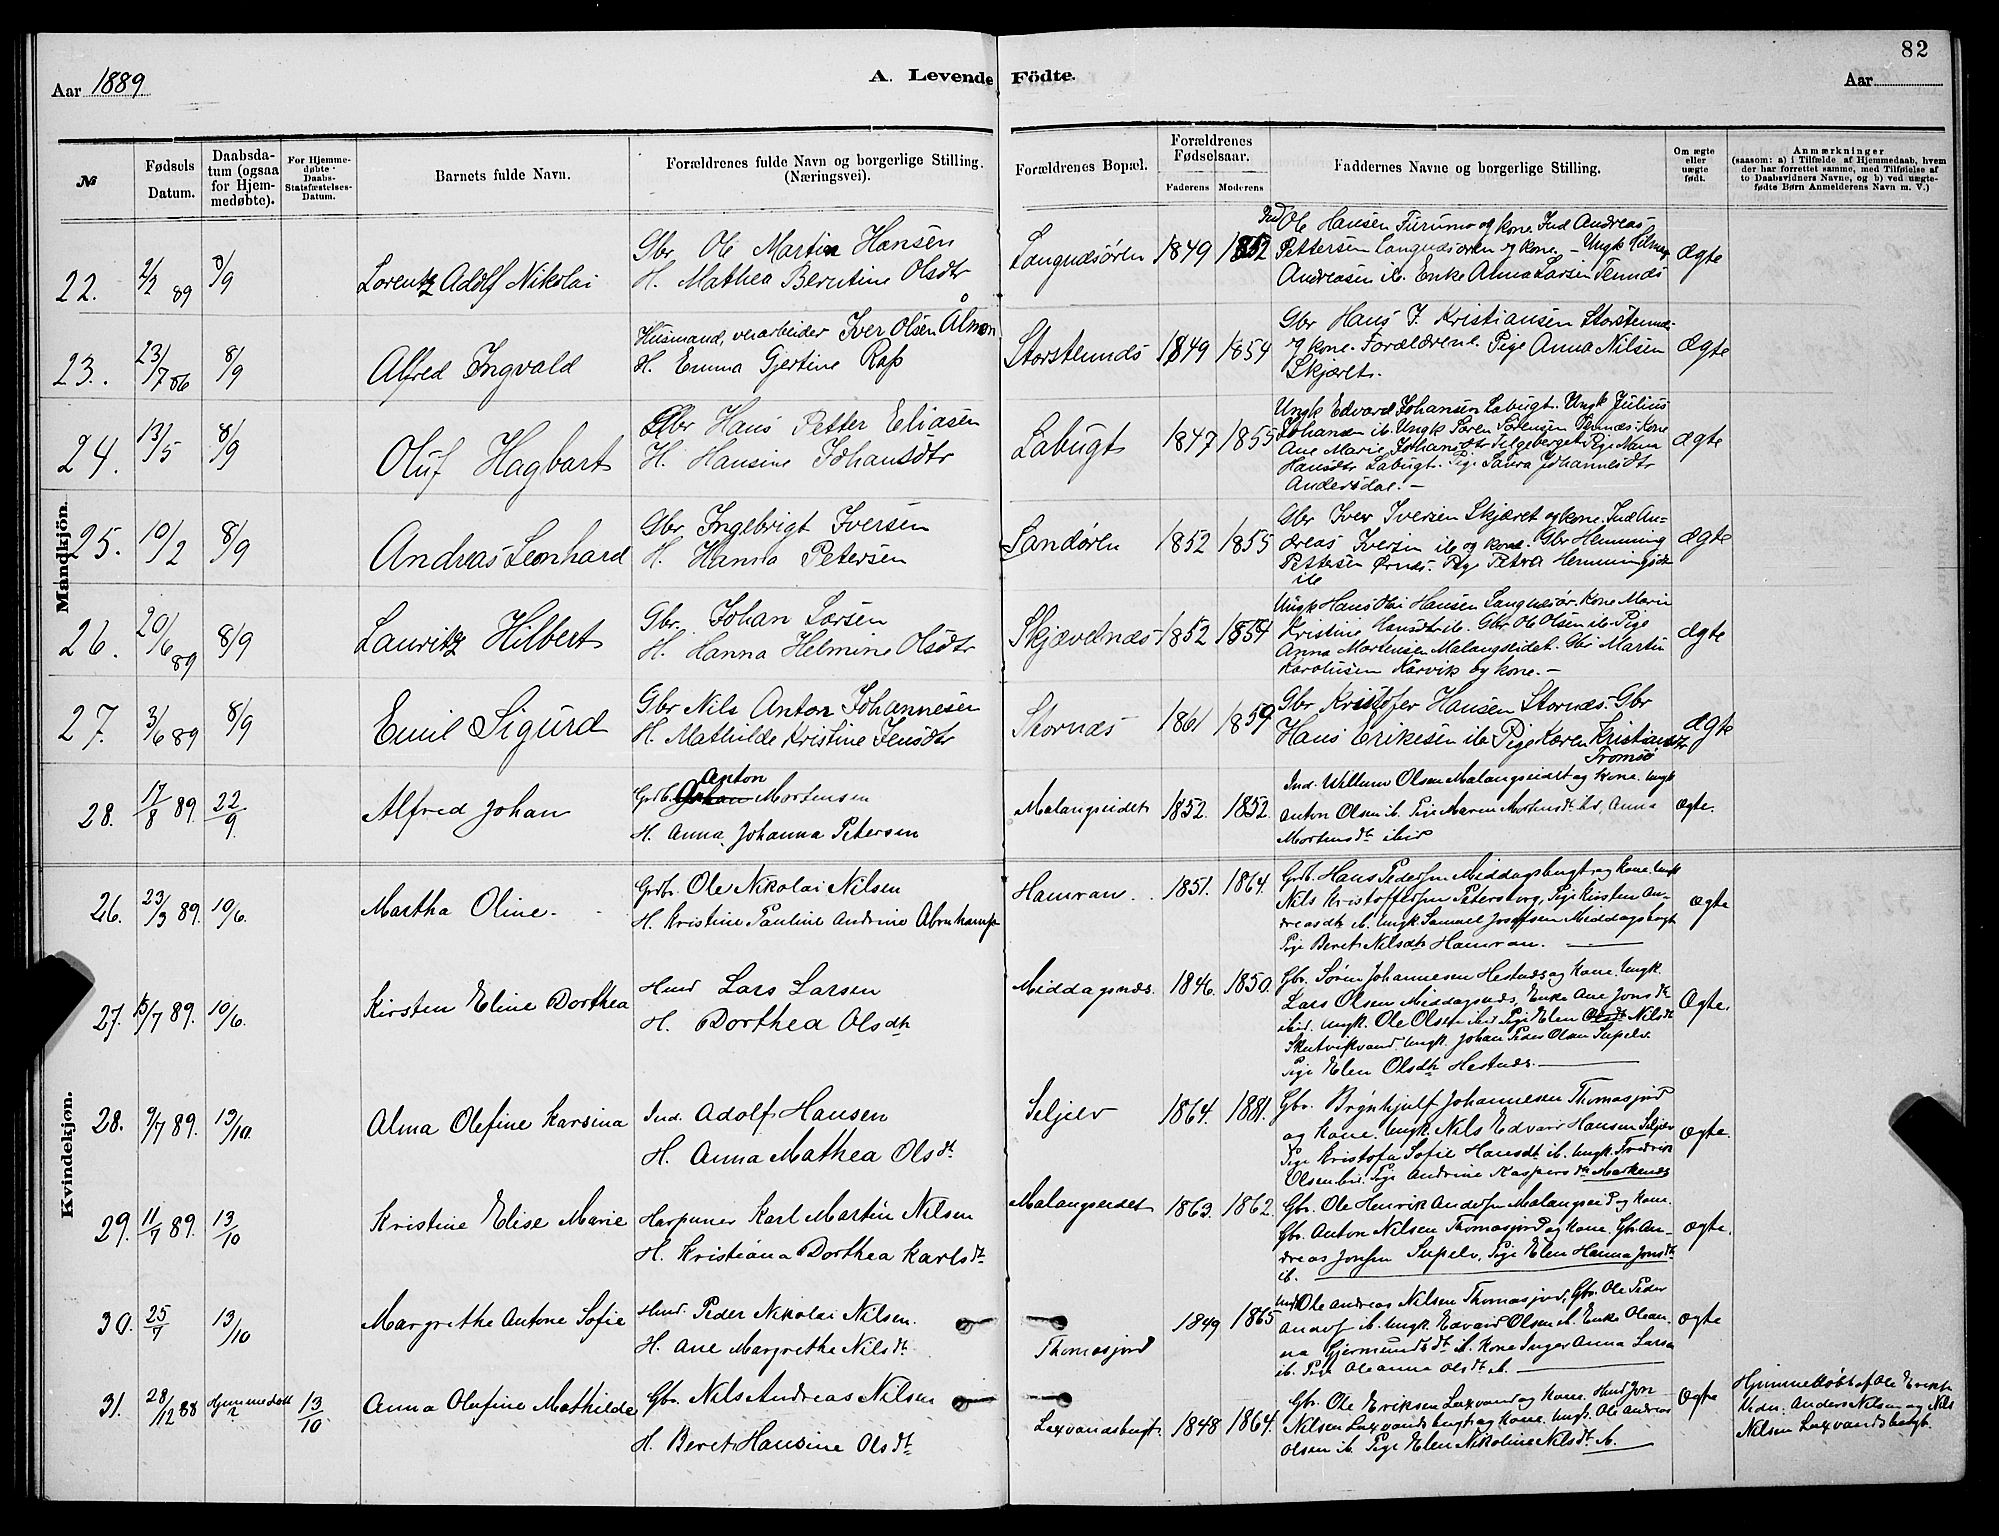 82
Aar 1889
A. Levende Födte.
Aar
№
Fødsels Datum.
Daabsdatum (ogsaa for Hjemmedøbte).
For Hjemmedøbte Daabs-Statsfæstelses-Datum.
Barnets fulde Navn.
Forældrenes fulde Navn og borgerlige Stilling. (Næringsvei).
Forældrenes Bopæl.
Forældrenes Fødselsaar.
Faderens
Moderens
Faddernes Navne og borgerlige Stilling.
Om ægte eller uægte født.
Anmærkninger
(saasom: a) i Tilfælde af Hjemmedaab, hvem der har forrettet samme, med Tilføielse af to Daabsvidners Navne, og b) ved uægtefødte Børn Anmelderens Navn m. V.)
Mandkjön.
22. 2/2 89 8/9 Lorentz Adolf Nikolai
Gbr Ole Martin Hansen
H. Mathea Berntine Olsdtr
Langnesören 1849 1852
Ind Ole Hansen Furumo og kone Ind Andreas
Pettersen Langnesören og kone - Ungk Hilmar
Andreasen ib. Enke Anna Larsen Tennes
ægte
23. 23/7 86 8/9 Alfred Ingvald
Husmand, vearbeider Iver Olsen Ålmen
H. Emma Gjertine Rap
Storstennes 1849 1854
Gbr Hans J. Kristiansen Storstennes
og kone. Forældrene. Pige Anna Nilsen
Skjæret.
ægte
24. 13/5 8/9 Oluf Hagbart
Gbr Hans Petter Eliasen
H. Hansine Johansdtr
Labugt 1847 1855
Ungk Edvard Johansen Labugt. Ungk Julius
Johansen ib. Ungk Sören Sörensen Tennes. Kone
Ane Marie Johansdtr Pige
Hansdtr Labugt. Pige Laura Johannesdtr
Andersdal. -
ægte
25. 10/2 8/9 Andreas Leonhard
Gbr Ingebrigt Iversen
H. Hanna Petersen
Sandören 1852 1855
Gbr Iver Iversen Skjæret og kone. Ind An-
dreas Iversen ib og kone. Gbr Hemming
Pettersen Örnes. Pige Petra Hemmingsdtr
ib
ægte
26. 20/6 89 8/9 Lauritz Hilbert
Gbr. Johan Larsen
H. Hanna Helmine Olsdtr
Skjævelnes 1852 1854
Ungk Hans Olai Hansen Langnesör. Kone Marie
Kristine Hansdtr ib. Gbr Ole Olsen ib. Pige
Anna Mortensen Malangseidet. Gbr Martin
Karolusen Kårvik og kone. -
ægte
27. 3/6 89 8/9 Emil Sigurd
Gbr Nils Anton Johannesen
H. Mathilde Kristine Jensdtr
Stornes 1861 1859
Gbr Kristofer Hansen Stornes. Gbr
Hans Eriksen ib Pige Karen Kristiansdtr
Tromsö
ægte
28. 17/8 89. 22/9. Alfred Johan
Grdb. Anton Mortensen
H. Anna Johanna Petersen
Malangseidet 1852. 1852.
Ind. Willum Olsen Malangseidet og Kone. Ungk
Anton Olsen ib. Pige Maren Mortensdt ibd, Anna
Mortensdt ibid
ægte.
Kvindekjön.
26. 23/3 89. 10/6. Martha Oline.
Grdb. Ole Nikolai Nilsen
H. Kristine Pauline Andrine Abrahams
Hamran. 1851. 1864.
Grdb. Hans Pedersen Middagsbugt og Kone. Ungk
Nils Kristoffersen Petersborg, Pige Kirsten An-
dreasdt ib. Ungk Samuel Josefsen Middagsbugt
Pige Beret Nilsdtr Hamran.
ægte
27. 15/7 89. 10/6. Kirsten Eline Dorthea
Hmd Lars Larsen
H. Dorthea Olsdtr
Middagsnes. 1846. 1850.
Gbr. Sören Johannesen Hestnes og Kone. Ungk.
Lars Olsen Middagsnes, Enke Ane Jonsdt
ibid. Ungk. Ole Olsen ibid Pige Elen Olsdt Nilsdt
Skutvikvand. Ungk. Johan Peder Olsen Supelv.
Pige Elen Olsdtr Hestnes.
Ægte.
28. 9/7 89. 13/10. Alma Olefine Karsina
Ind. Adolf Hansen
H. Anna Mathea Olsdt
Seljelv 1864. 1881.
Gbr. Brynhjulf Johannesen Thomasjord
og Kone. Ungk. Nils Edvard Hansen Seljelv
Pige Kristofa Sofie Hansdt ib. Ungk. Fredrik
Olsen ibid. Pige Andrine Kaspersdt Markenes
ægte.
29. 11/7 89. 13/10 Kristine Elise Marie
Harpuner Karl Martin Nilsen
H. Kristiana Dorthea Karlsdt
Malangseidet 1863. 1862.
Gbr. Ole Henrik Andersen Malangseid og Kone.
Gbr. Anton Nilsen Thomasjord og Kone. Gbr. An-
dreas Jonsen Supelv, Pige Elen Hanna Jonsdt
ib.
ægte.
30. 25/7 13/10 Margrethe Antone Sofie
Hmd. Peder Nikolai Nilsen.
H. Ane Margrethe Nilsdt
Thomasjord 1849 1865
Ungk Ole Andreas Nilsen Thomasjord, Gbr. Ole Peder
Anders ib. Ungk. Edvard Olsen ib. Enke Olean-
na Gjermundsdt ib. Kone Inger Anna Larsen
ib. Pige Oleanna Olsdt ib.
ægte
31. 28/12 88 Hjemmedøbt 13/10 Anna Olefine Mathilde
Gbr. Nils Andreas Nilsen
H. Beret Hansine Olsdt
Laxvandsbugt. 1848 1864.
Gbr. Ole Eriksen Laxvand og Kone. Hmd Jon
Nilsen Laxvandsbugt og Kone. Ungk. Ole Andreas
Olsen ib. Pige Elen Nikoline Nilsdt ib.
Ægte
Hjemmedöbt af Ole Eriks
Vidn. Anders Nilsen og Nils
Nilsen Laxvandsbugt.